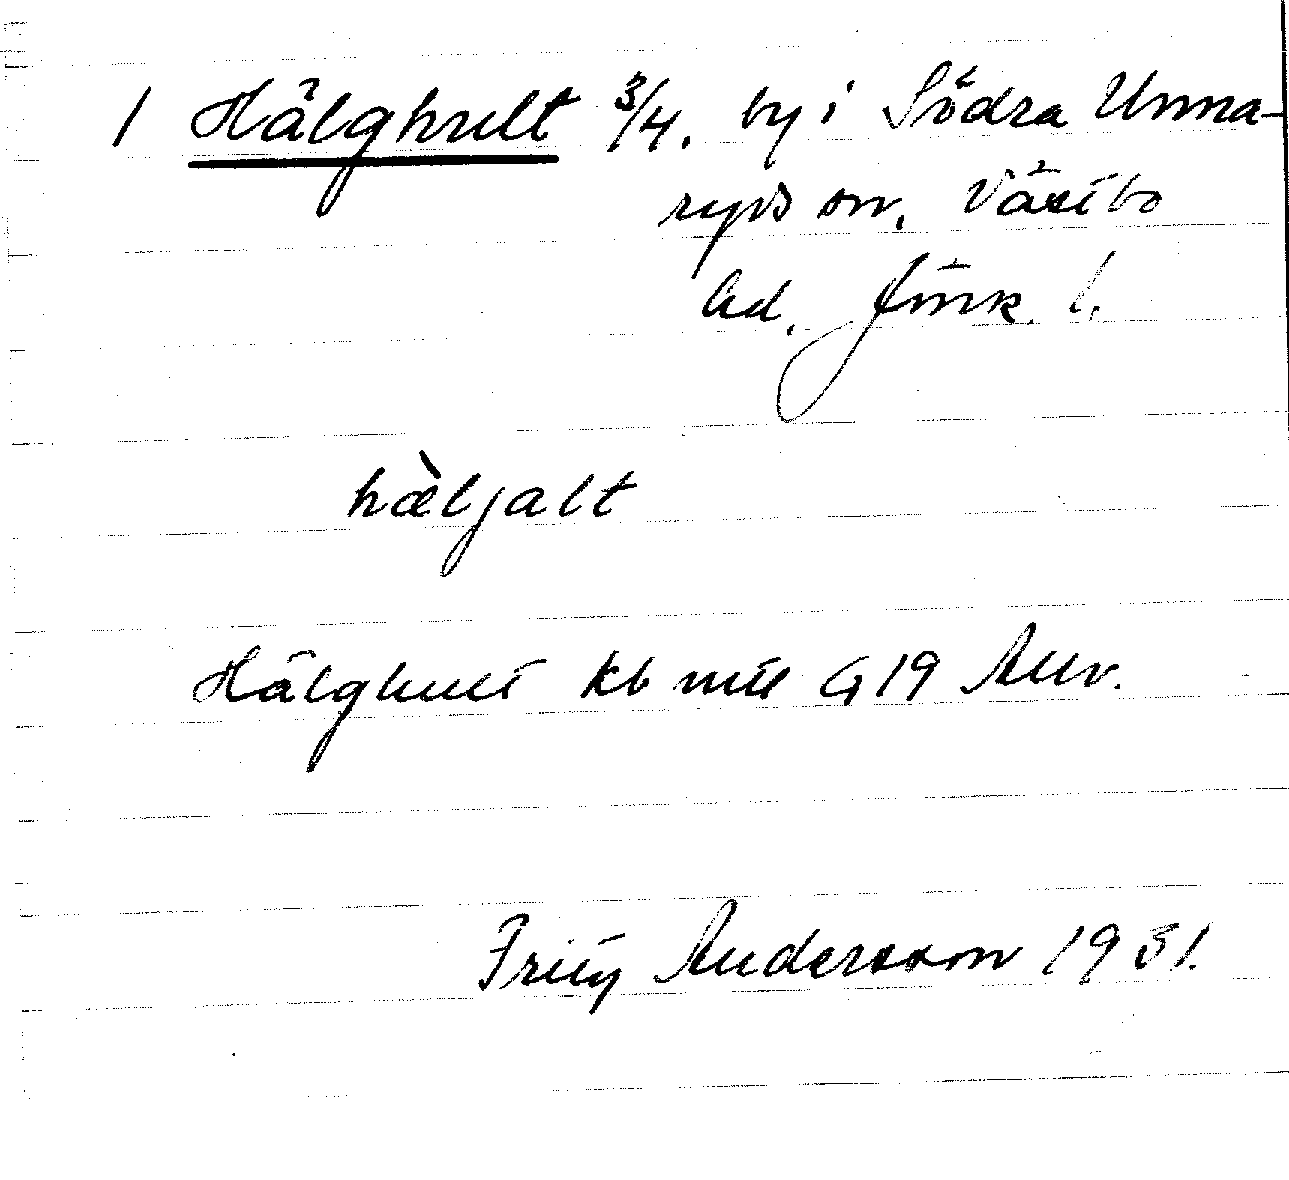 1 Hälghult 3/4. by i Södra Unna-
ryds sn. Västbo
hd. Jönk. l.
hæ̀ljalt
Hälghult kb mtl G 19 Allv.
Fritz Andersson 1931.